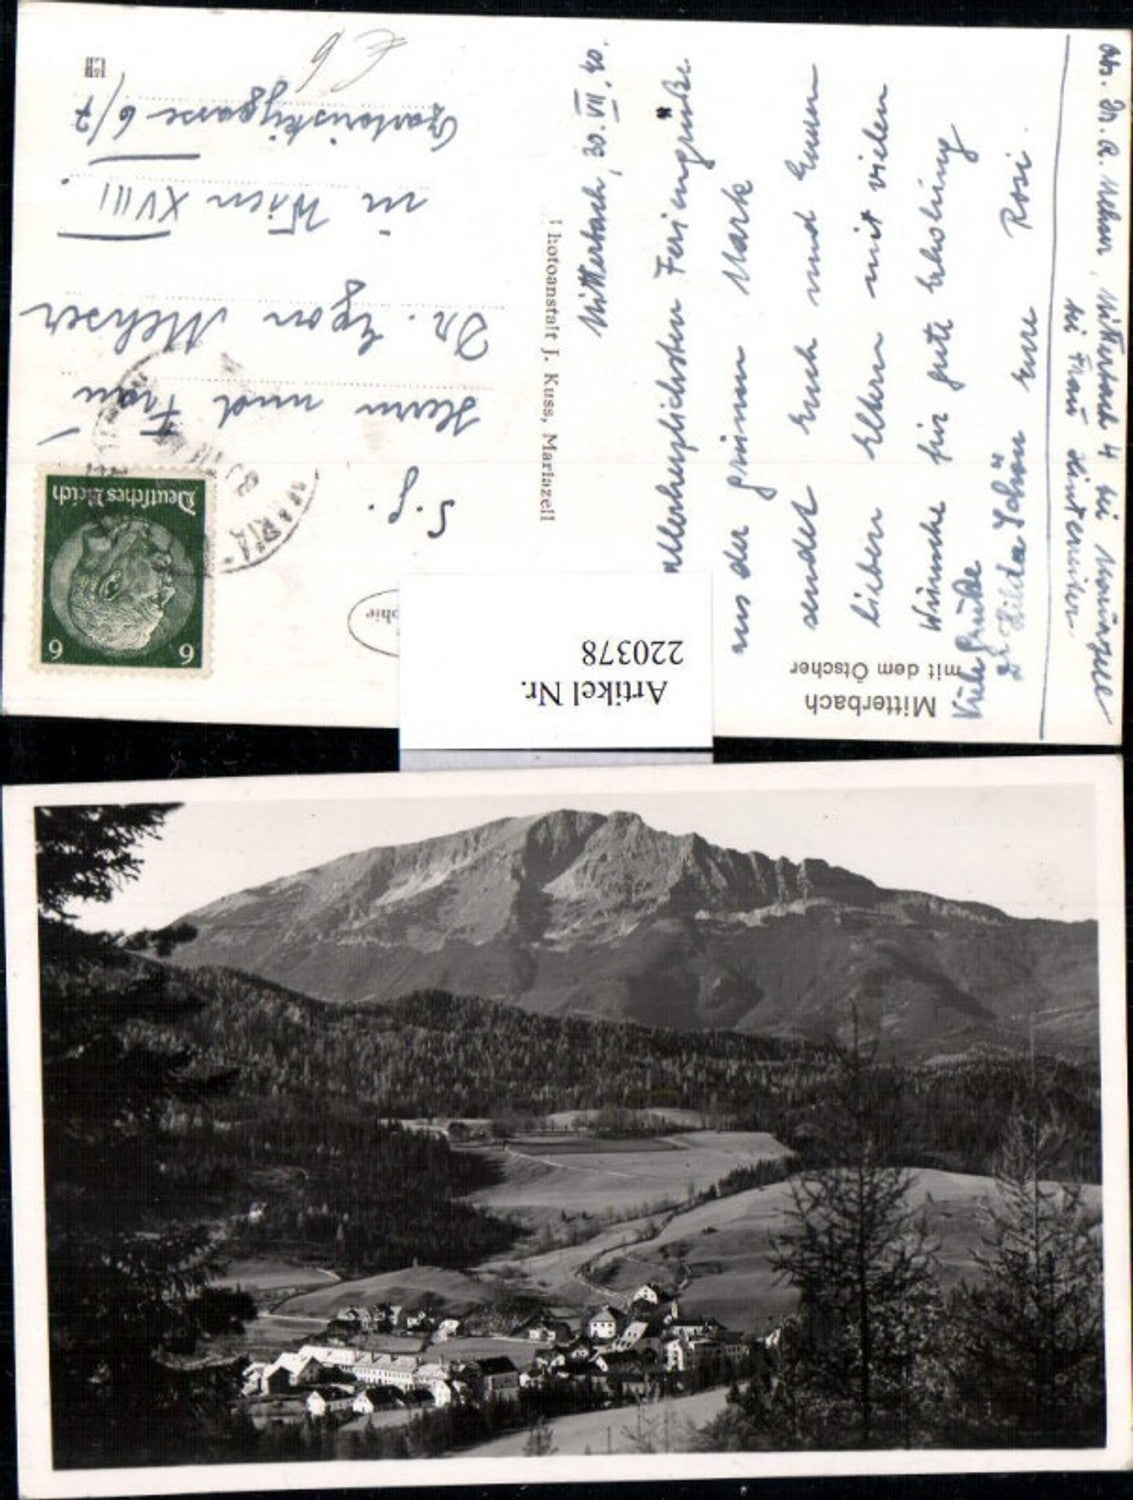 Mitterbach
mit dem Ötscher
Mitterbach, 30. VII. 40.
Allerherzlichsten Feriengrüße
aus der grünen Mark
sendet Euch und Euren
lieben Eltern mit vielen
Wünsche für gute Erholung
Eure Rosi.
Viele Grüße
Dr. Hilda
Mitterbach 4 bei Mariazell
bei Frau
Photoanstalt J. Kuss, Mariazell
Deutsches Reich
6 6
S. g.
Herrn und Frau
Dr. Egon Mehser
in Wien XVIII.
6/7
€ 6
Artikel Nr.
220378